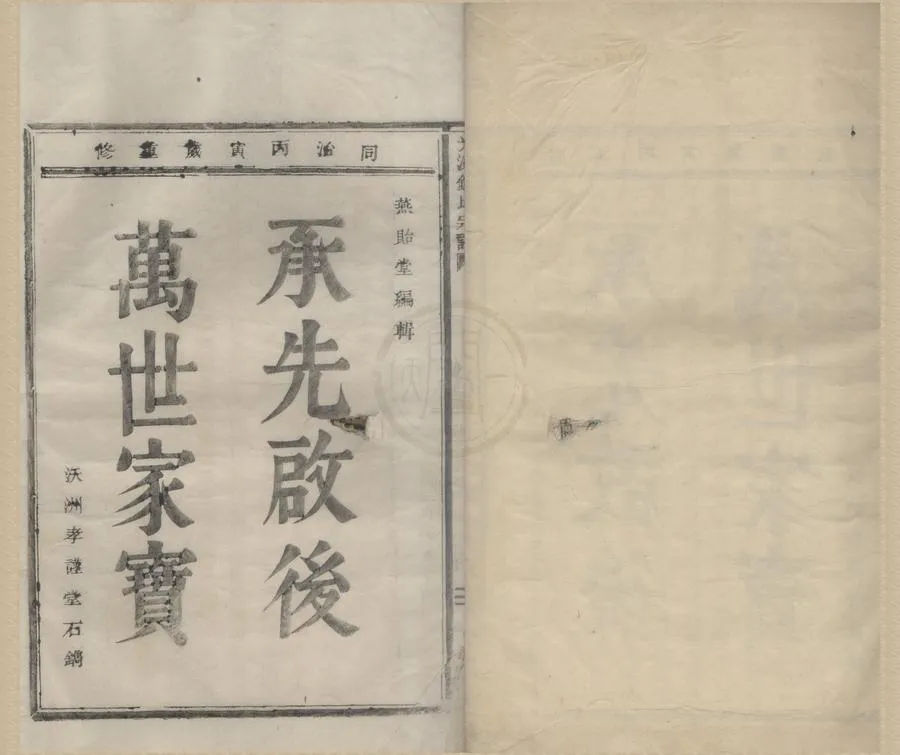 同治丙寅歲重修
燕貽堂編輯
承先啟後
萬世家寶
沃洲孝謹堂石鐫